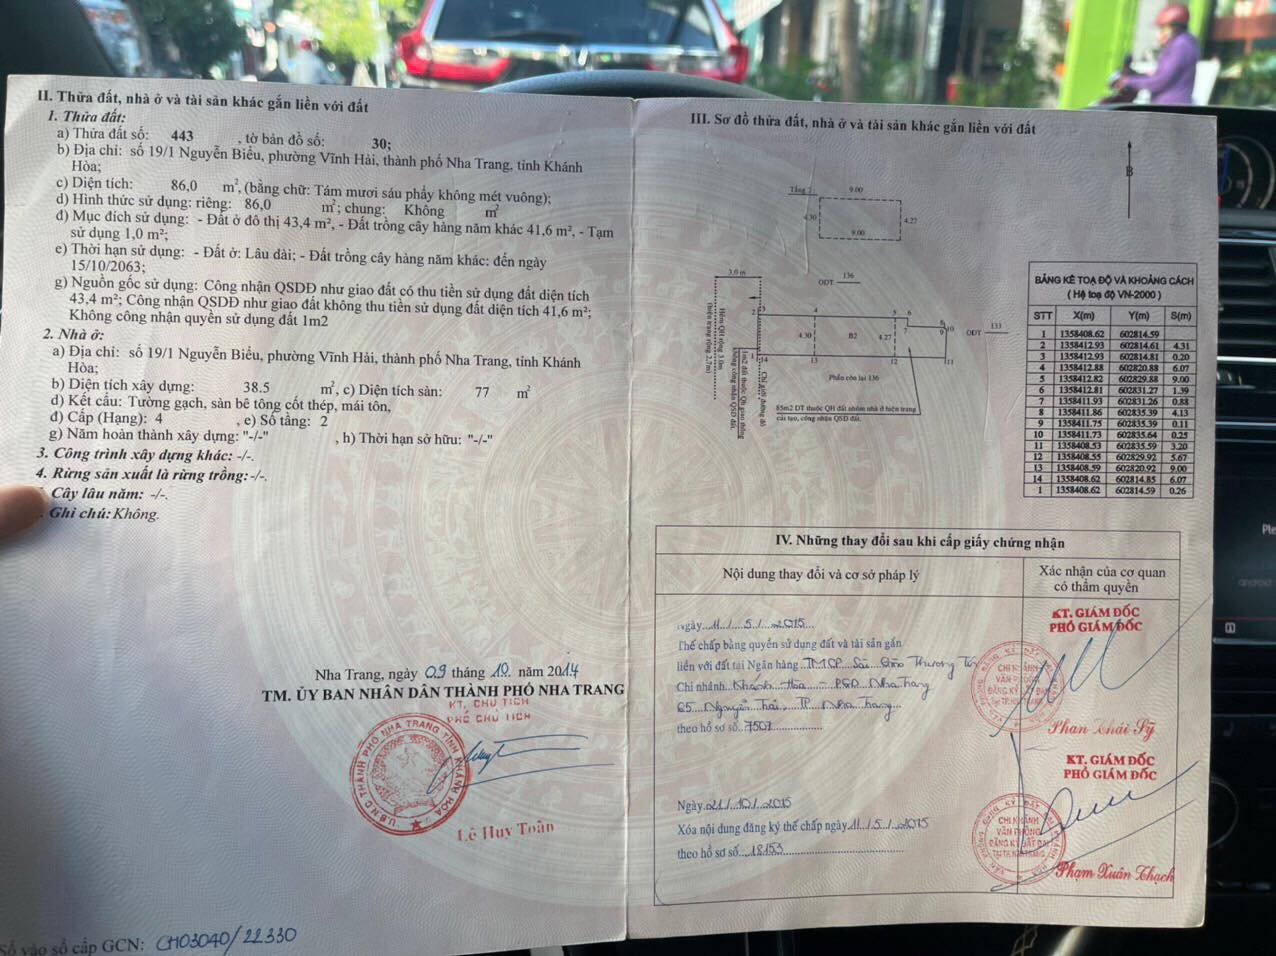 II. Thửa đất, nhà ở và tài sản khác gắn liền với đất
1. Thửa đất:
a) Thửa đất số: 443 , tờ bản đồ số: 30;
b) Địa chỉ: số 19/1 Nguyễn Biểu, phường Vĩnh Hải, thành phố Nha Trang, tỉnh Khánh
Hòa;
c) Diện tích: 86,0 m², (bằng chữ: Tám mươi sáu phẩy không mét vuông);
d) Hình thức sử dụng: riêng: 86,0 m²; chung: Không m²
đ) Mục đích sử dụng: - Đất ở đô thị 43,4 m², - Đất trồng cây hàng năm khác 41,6 m², - Tạm
sử dụng 1,0 m²;
e) Thời hạn sử dụng: - Đất ở: Lâu dài; - Đất trồng cây hàng năm khác: đến ngày
15/10/2063;
g) Nguồn gốc sử dụng: Công nhận QSDĐ như giao đất có thu tiền sử dụng đất diện tích
43,4 m²; Công nhận QSDĐ như giao đất không thu tiền sử dụng đất diện tích 41,6 m²;
Không công nhận quyền sử dụng đất 1m2
2. Nhà ở:
a) Địa chỉ: số 19/1 Nguyễn Biểu, phường Vĩnh Hải, thành phố Nha Trang, tỉnh Khánh
Hòa;
b) Diện tích xây dựng: 38.5 m², c) Diện tích sàn: 77 m²
d) Kết cấu: Tường gạch, sàn bê tông cốt thép, mái tôn,
đ) Cấp (Hạng): 4 , e) Số tầng: 2
g) Năm hoàn thành xây dựng: "-/-" , h) Thời hạn sở hữu: "-/-"
3. Công trình xây dựng khác: -/-.
4. Rừng sản xuất là rừng trồng: -/-.
Cây lâu năm: -/-.
Ghi chú: Không.
Nha Trang, ngày 09 tháng 10 năm 2014
TM. ỦY BAN NHÂN DÂN THÀNH PHỐ NHA TRANG
KT. CHỦ TỊCH
PHÓ CHỦ TỊCH
U.B.N.D THÀNH PHỐ NHA TRANG TỈNH KHÁNH HÒA
Lê Huy Toàn
Số vào sổ cấp GCN: CH03040/22330
III. Sơ đồ thửa đất, nhà ở và tài sản khác gắn liền với đất
B
Tầng 2
9.00
4.30
4.27
9.00
3,0 m
136
ODT
133
ODT
2
3
4
5
6
7
8
9
10
11
12
13
14
1
4.30
B2
4.27
Phần còn lại 136
Hẻm QH rộng 3.0m
(hiện trạng rộng 2,7m)
1m2 đất thuộc Qh giao thông
không công nhận QSD đất.
Chỉ giới đường đỏ
85m2 DT thuộc QH đất nhóm nhà ở hiện trạng
cải tạo, công nhận QSD đất.
BẢNG KÊ TOẠ ĐỘ VÀ KHOẢNG CÁCH
( Hệ toạ độ VN-2000 )
STT X(m) Y(m) S(m)
1 1358408.62 602814.59
2 1358412.93 602814.61 4.31
3 1358412.93 602814.81 0.20
4 1358412.88 602820.88 6.07
5 1358412.82 602829.88 9.00
6 1358412.81 602831.27 1.39
7 1358411.93 602831.26 0.88
8 1358411.86 602835.39 4.13
9 1358411.75 602835.39 0.11
10 1358411.73 602835.64 0.25
11 1358408.53 602835.59 3.20
12 1358408.55 602829.92 5.67
13 1358408.59 602820.92 9.00
14 1358408.62 602814.85 6.07
1 1358408.62 602814.59 0.26
IV. Những thay đổi sau khi cấp giấy chứng nhận
Nội dung thay đổi và cơ sở pháp lý
Xác nhận của cơ quan
có thẩm quyền
Ngày 11/5/2015
Thế chấp bằng quyền sử dụng đất và tài sản gắn
liền với đất tại Ngân hàng TMCP Sài Gòn Thương Tín
Chi nhánh Khánh Hòa - PGD Nha Trang
65 Nguyễn Trãi, TP Nha Trang
theo hồ sơ số 7507
KT. GIÁM ĐỐC
PHÓ GIÁM ĐỐC
CHI NHÁNH
VĂN PHÒNG
ĐĂNG KÝ ĐẤT ĐAI
TẠI TP. NHA TRANG
Phan Khải Sỹ
Ngày 21/10/2015
Xóa nội dung đăng ký thế chấp ngày 11/5/2015
theo hồ sơ số 18153
KT. GIÁM ĐỐC
PHÓ GIÁM ĐỐC
CHI NHÁNH
VĂN PHÒNG
ĐĂNG KÝ ĐẤT ĐAI
TẠI TP. NHA TRANG
Phạm Xuân Thạch
Ple
android